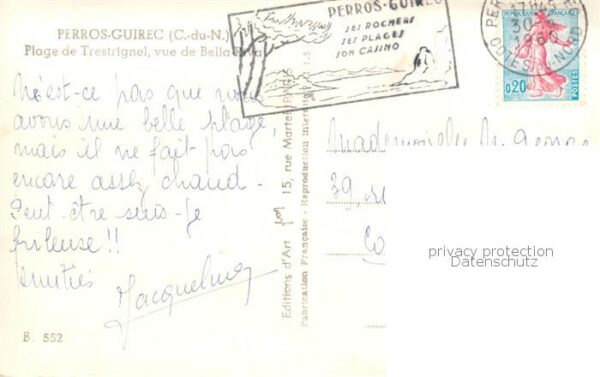 PERROS-GUIREC (C.-du-N.)
Plage de Trestrignel, vue de Bella
N'est-ce pas que nous
avons une belle plage,
mais il ne fait pas
encore assez chaud -
Peut être suis-je
frileuse !!
Amitiés
Jacqueline
B 552
Editions d'Art 15, rue Martel
Fabrication Française - Reproduction
PERROS-GUIREC
SES ROCHERS
SES PLAGES
SON CASINO
30
1960
COTES DU NORD
0,20
POSTES
Mademoiselle
79,
privacy protection
Datenschutz